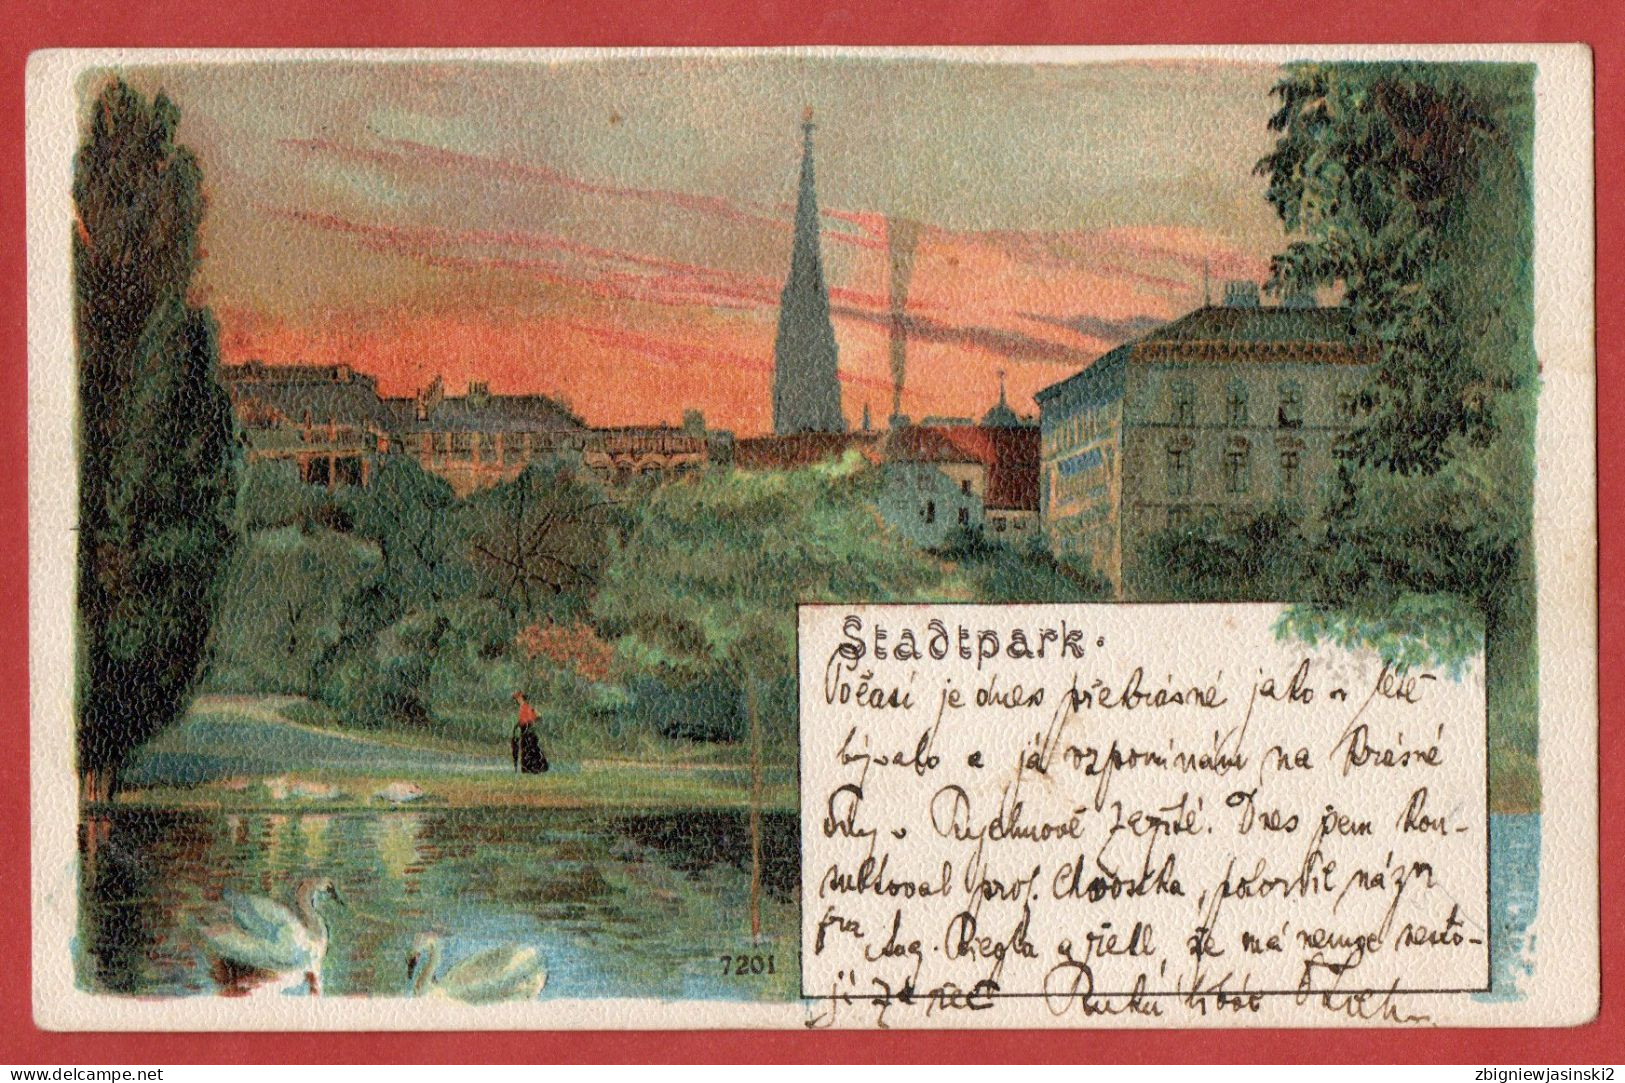 Stadtpark.
Počasí je dnes překrásné jako v létě
bývalo a já vzpomínám na krásné
dny v Rychnově Dnes jsem kon-
sultoval prof. Chvostka, potvrdil názor
Aug. Biegla a řekl, že má nemoc nesto-
jí za řeč Ruku líbá
7201
delcampe.net
zbigniewjasinski2